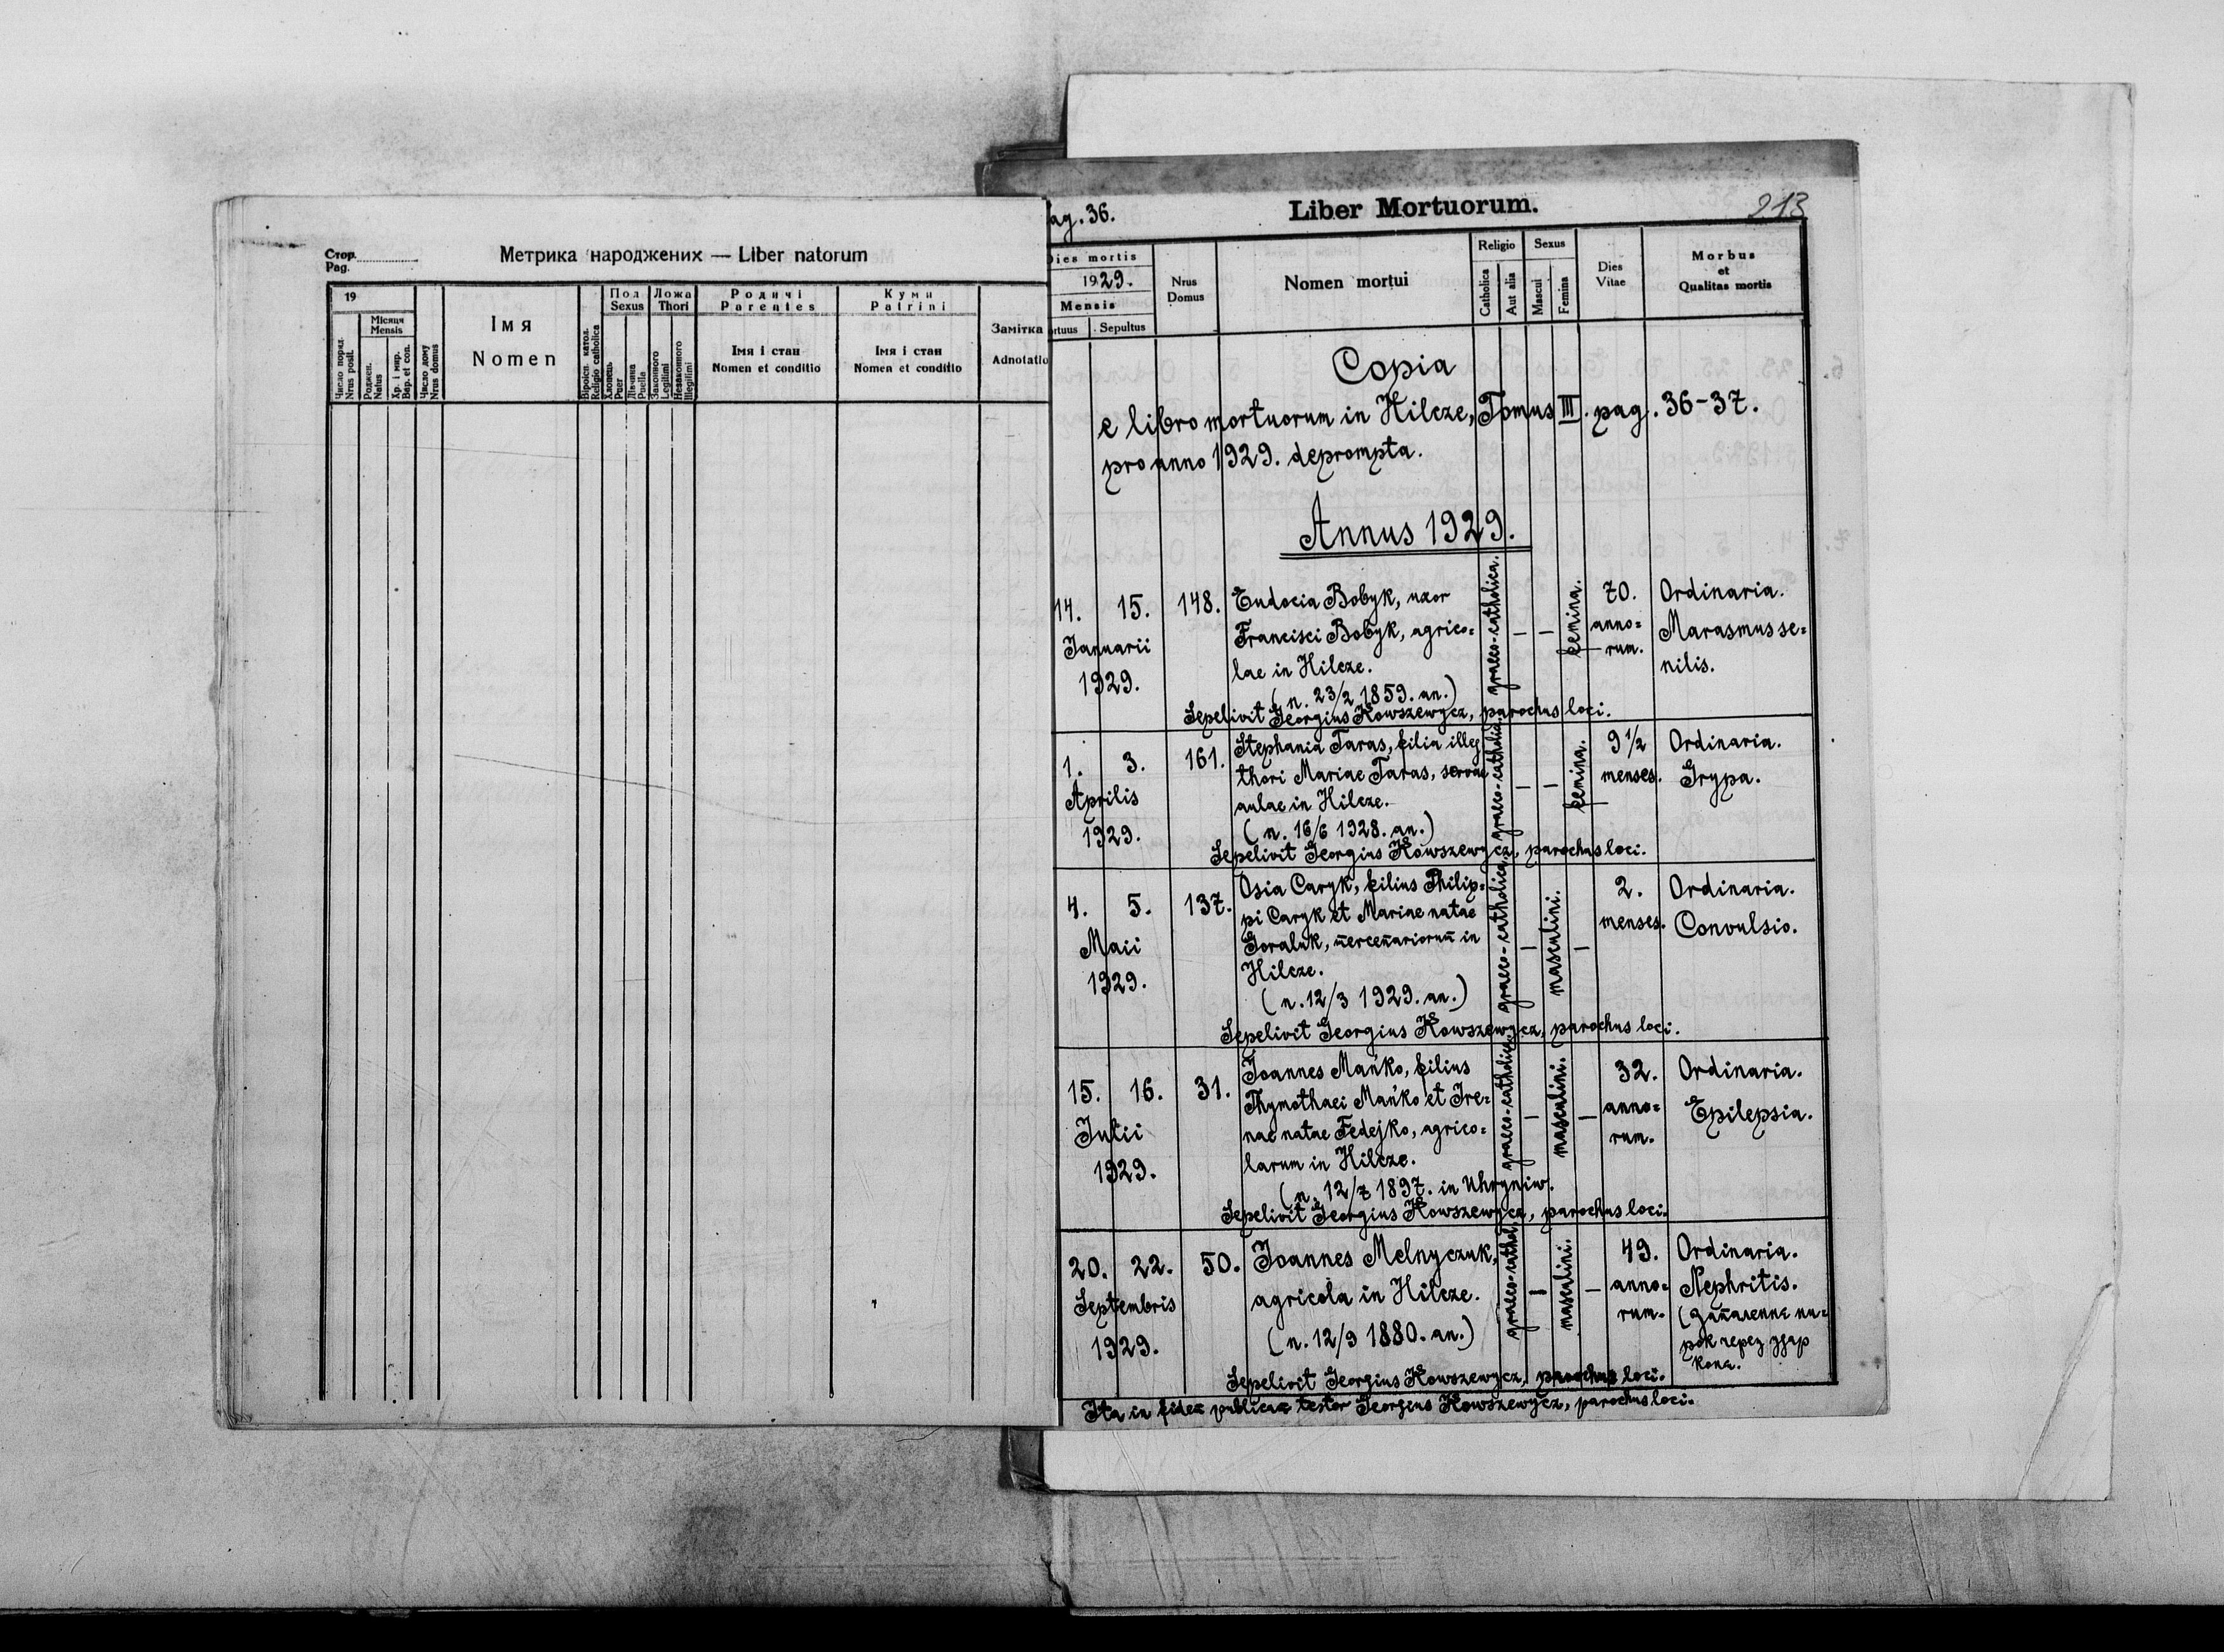 Стор.
Pag.
Метрика народжених — Liber natorum
19
Місяця
Mensis
Число поряд.
Nrus posit.
Роджен.
Natus
Хр. і мир.
Bap. et con.
Число дому
Nrus domus
Імя
Nomen
Віроісп. катол.
Religio catholica
Пол
Sexus
Хлопець
Puer
Дівчина
Puella
Ложа
Thori
Законного
Legitimi
Незаконного
Illegitimi
Родичі
Parentes
Імя і стан
Nomen et conditio
Куми
Patrini
Імя і стан
Nomen et conditio
Замітка
Adnotatio
ag. 36.
Liber Mortuorum.
213
Dies mortis
1929.
Mensis
rtuus
Sepultus
Nrus
Domus
Nomen mortui
Religio
Catholica
Aut alia
Sexus
Mascui
Femina
Dies
Vitae
Morbus
et
Qualitas mortis
Copia
e libro mortuorum in Hilcze, Tomus III. pag. 36-37.
pro anno 1929. deprompta.
Annus 1929.
14. 15.
Januarii
1929.
148.
Eudocia Bobyk, uxor
Francisci Bobyk, agrico=
lae in Hilcze.
(n. 23/2 1859. an.)
graeco-catholica.
—
—
femina.
70.
anno=
rum.
Ordinaria.
Marasmus se=
nilis.
Sepelivit Georgius Kowszewycz, parochus loci.
1. 3.
Aprilis
1929.
161.
Stephania Taras, filia illeg
thori Mariae Taras, servae
aulae in Hilcze.
(n. 16/6 1928. an.)
graeco-catholica
—
—
femina.
9 1/2
menses.
Ordinaria.
Grypa.
Sepelivit Georgius Kowszewycz, parochus loci.
4. 5.
Maii
1929.
137.
Osia Caryk, filius Philip=
pi Caryk et Mariae natae
Goraluk, mercenariorum in
Hilcze.
(n. 12/3 1929. an.)
graeco-catholica
—
masculini.
—
2.
menses.
Ordinaria.
Convulsio.
Sepelivit Georgius Kowszewycz, parochus loci.
15. 16.
Julii
1929.
31.
Joannes Mańko, filius
Thymothaei Mańko et Ire=
nae natae Fedejko, agrico=
larum in Hilcze.
(n. 12/7 1897. in Uhryniw.
graeco-catholica
—
masculini.
—
32.
anno=
rum.
Ordinaria.
Epilepsia.
Sepelivit Georgius Kowszewycz, parochus loci.
20. 22.
Septembris
1929.
50.
Joannes Melnyczuk,
agricola in Hilcze.
(n. 12/9 1880. an.)
graeco-cathol.
—
masculini.
—
49.
anno=
rum.
Ordinaria.
Nephritis.
(запаленнє ни=
рок через удар
коня.
Sepelivit Georgius Kowszewycz, parochus loci.
Ita in fidem publicam testor Georgius Kowszewycz, parochus loci.